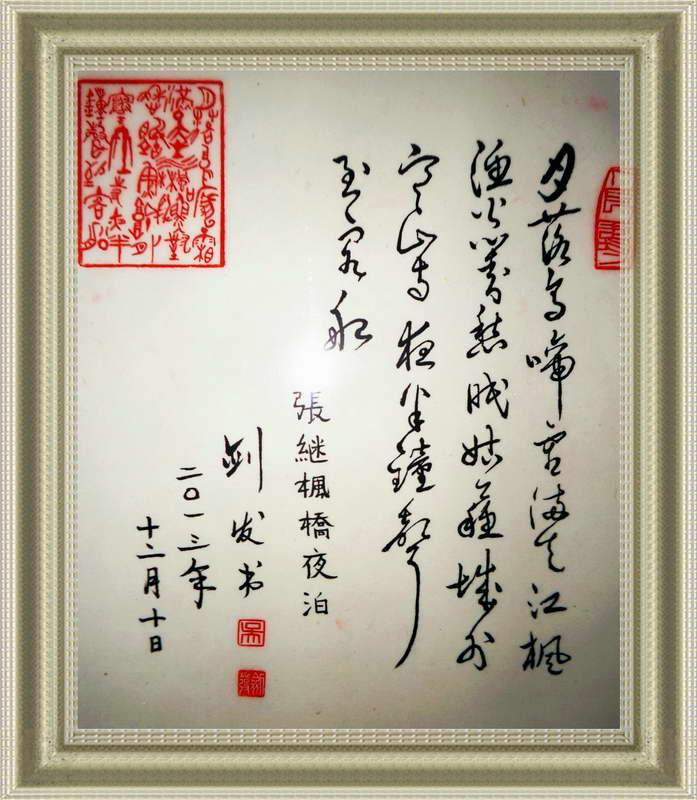 月落烏啼霜满天江楓
渔火對愁眠姑蘇城外
寒山寺夜半鐘聲
到客船
張継楓橋夜泊
剑发书
二〇一三年
十二月十日